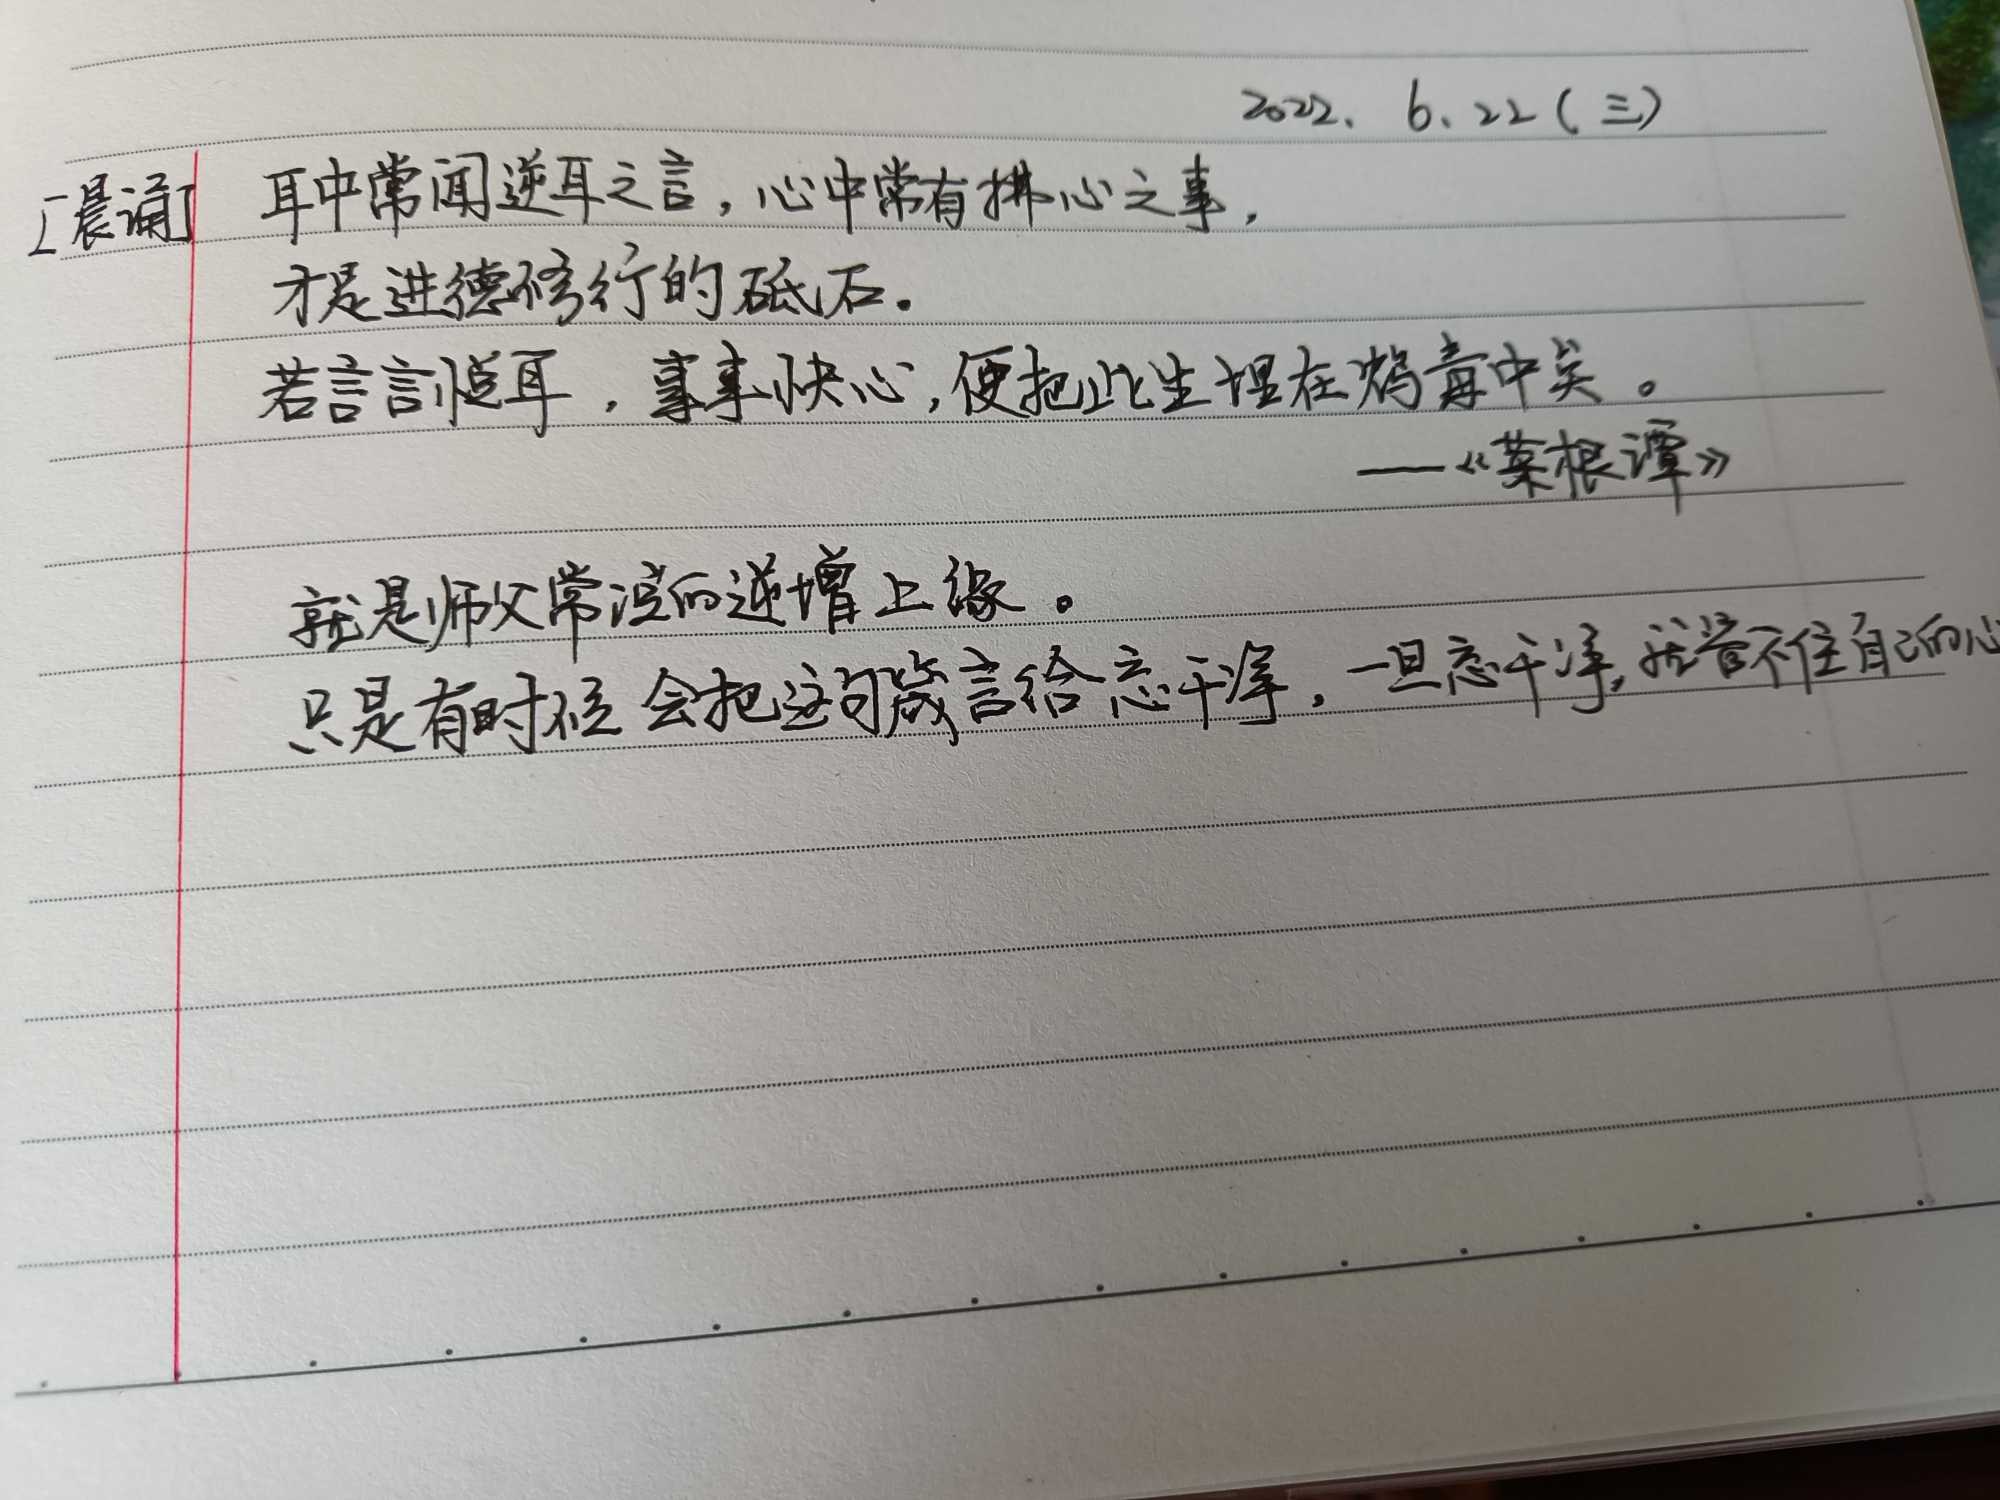 2022. 6. 22 (三)
「晨诵」 耳中常闻逆耳之言，心中常有拂心之事，
才是进德修行的砥石。
若言言悦耳，事事快心，便把此生埋在鸩毒中矣。
——《菜根谭》
就是师父常说的逆增上缘。
只是有时候会把这句箴言给忘干净，一旦忘干净，就管不住自己的心